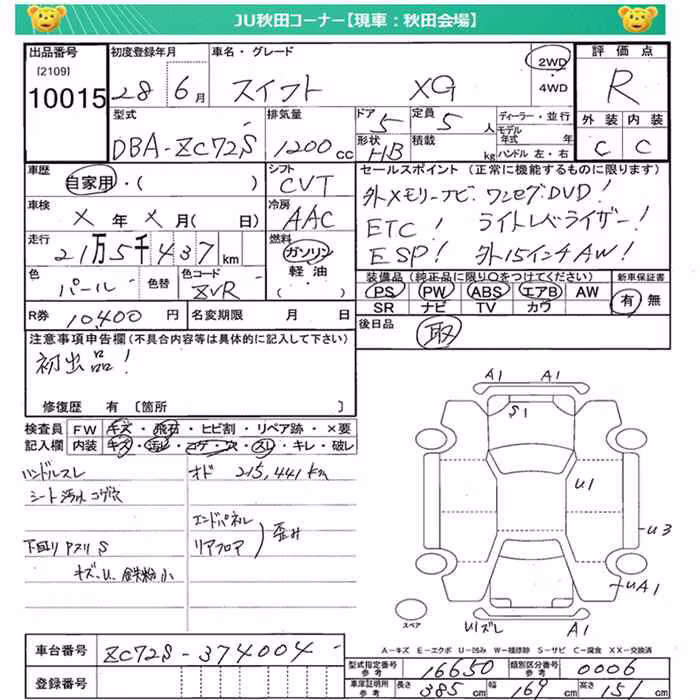 JU秋田コーナー【現車：秋田会場】
出品番号 初度登録年月 車名・グレード 評価点
[2109]
10015 28 6月 スイフト XG 2WD・4WD R
型式 排気量 ドア 定員 ディーラー・並行 外装 内装
DBA-ZC72S 1200cc 5 5人 モデル年式 年 C C
形状 HB 積載 kg ハンドル 左・右
車歴 シフト セールスポイント(正常に機能するものに限ります)
自家用・( ) CVT 外メモリーナビ.ワンセグ.DVD!
車検 冷房 ETC! ライトレベライザー!
X年X月(日) AAC ESP! 外15インチAW!
走行 燃料
21万5千437km ガソリン
軽油
( )
色 色替 色コード 装備品(純正品に限り○をつけてください) 新車保証書
パール ZVR PS PW ABS エアB AW 有 無
SR ナビ TV カワ
R券 10,400円 名変期限 月 日 後日品 取
注意事項申告欄(不具合内容等は具体的に記入して下さい)
初出品!
修復歴 有 〔箇所 〕
検査員 FW キズ・飛石・ヒビ割・リペア跡・×要
記入欄 内装 キズ・汚れ・コゲ・穴・スレ・キレ・破レ
ハンドルスレ オド 215,441km
シート汚れコゲ穴
エンドパネル
下回りサビ S リアフロア 歪み
キズ、U、鉄粉小
A1 A1
S1
U1
U3
UA1
スペア U1ズレ A1
A－キズ E－エクボ U－凹み W－補修跡 S－サビ C－腐食 XX－交換済
車台番号 ZC72S-374004
登録番号
型式指定番号 参考 16650 類別区分番号 参考 0006
車庫証明用 参考 長さ 385cm 幅 169cm 高さ 151cm